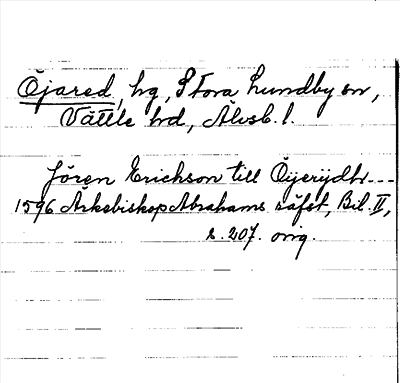 Öjared, hg, Stora Lundby sn,
Vättle hd, Älvsb. l.
Jören Erichson till Öijerijdh---
1596 Ärkebiskop Abrahams räfst, Bil. II,
s. 207. orig.